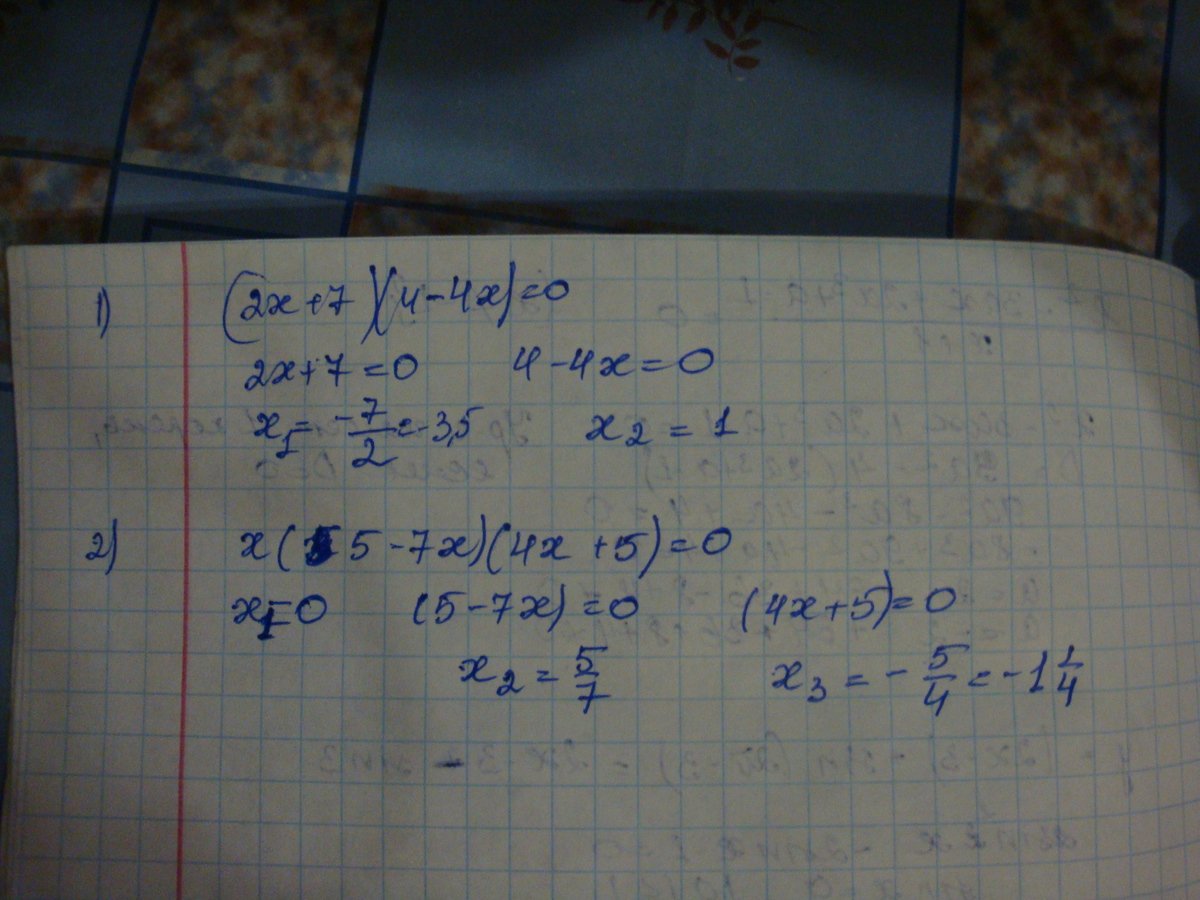 1) (2x+7)(4-4x)=0
2x+7=0 4-4x=0
x₁=-7/2=-3,5 x₂=1
2) x(5-7x)(4x+5)=0
x₁=0 (5-7x)=0 (4x+5)=0
x₂=5/7 x₃=-5/4=-1 1/4